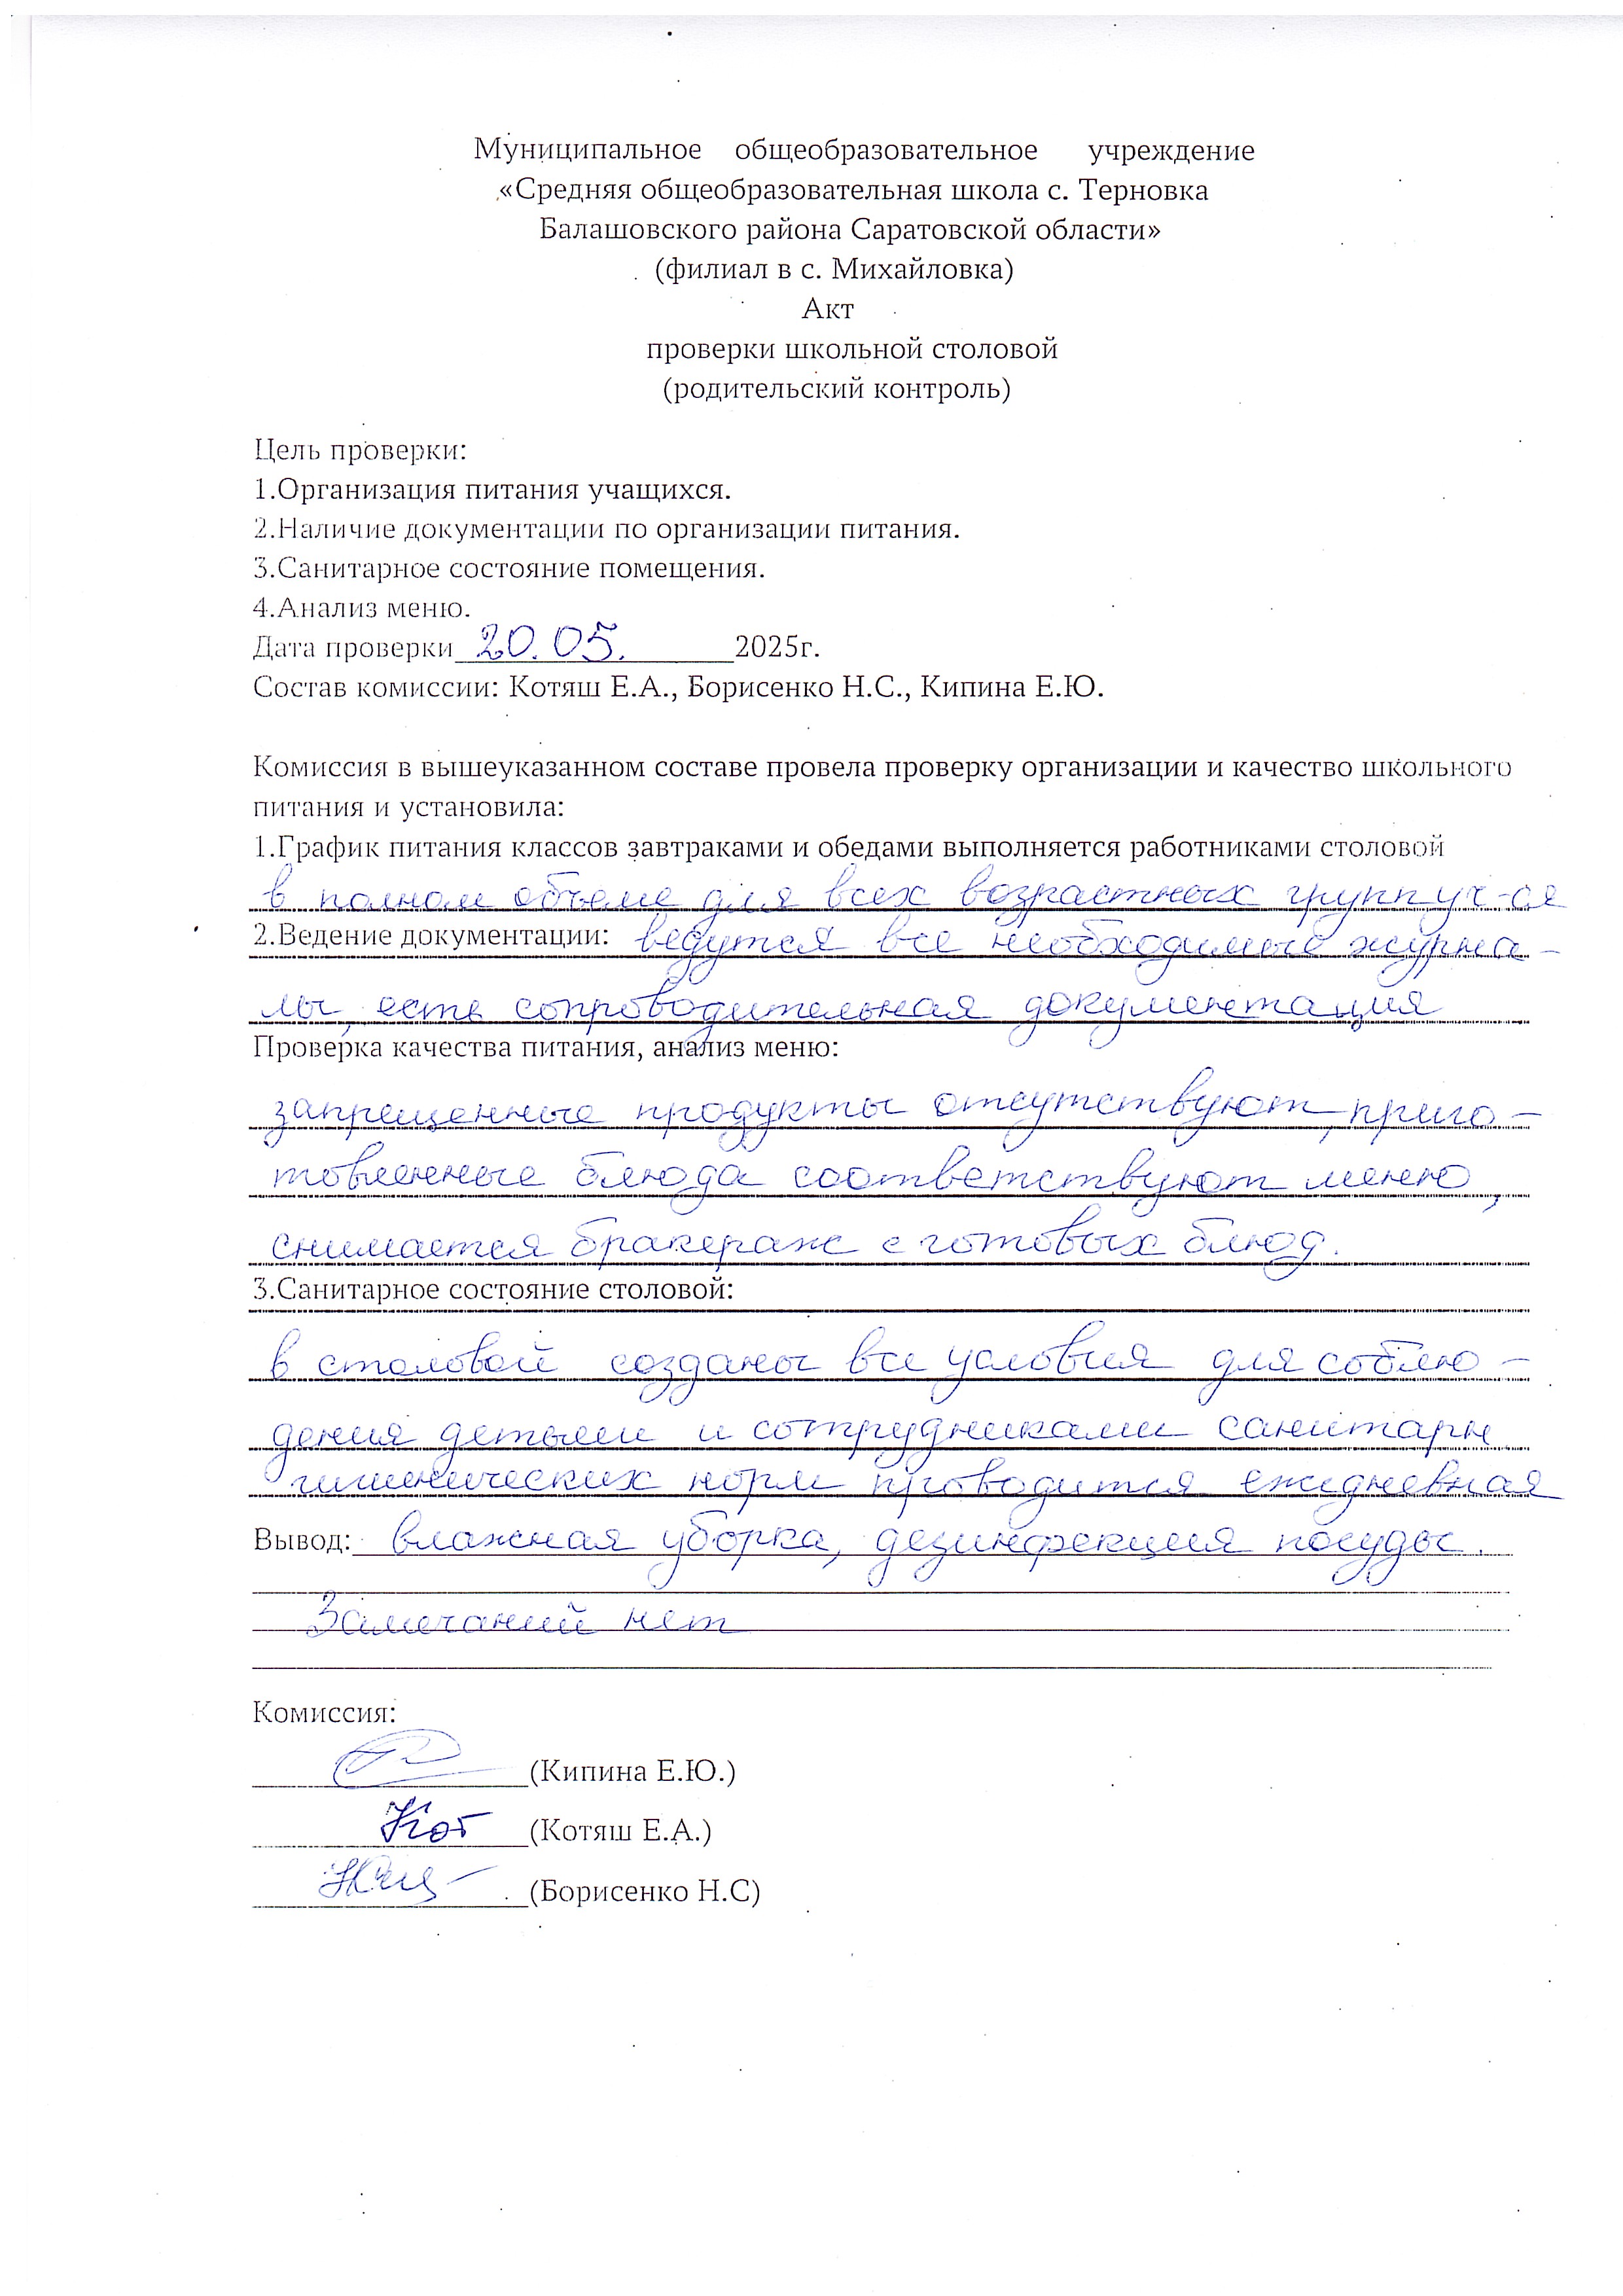 Муниципальное общеобразовательное учреждение
«Средняя общеобразовательная школа с. Терновка
Балашовского района Саратовской области»
(филиал в с. Михайловка)
Акт
проверки школьной столовой
(родительский контроль)
Цель проверки:
1.Организация питания учащихся.
2.Наличие документации по организации питания.
3.Санитарное состояние помещения.
4.Анализ меню.
Дата проверки 20.05. 2025г.
Состав комиссии: Котяш Е.А., Борисенко Н.С., Кипина Е.Ю.
Комиссия в вышеуказанном составе провела проверку организации и качество школьного
питания и установила:
1.График питания классов завтраками и обедами выполняется работниками столовой
в полном объеме для всех возрастных групп уч-ся
2.Ведение документации: ведутся все необходимые журна-
лы, есть сопроводительная документация
Проверка качества питания, анализ меню:
запрещенные продукты отсутствуют, приго-
товленные блюда соответствуют меню,
снимается бракераж с готовых блюд.
3.Санитарное состояние столовой:
в столовой созданы все условия для соблю-
дения детьми и сотрудниками санитарн.
гигиенических норм проводится ежедневная
Вывод: влажная уборка, дезинфекция посуды.
Замечаний нет
Комиссия:
(Кипина Е.Ю.)
Кот (Котяш Е.А.)
(Борисенко Н.С)